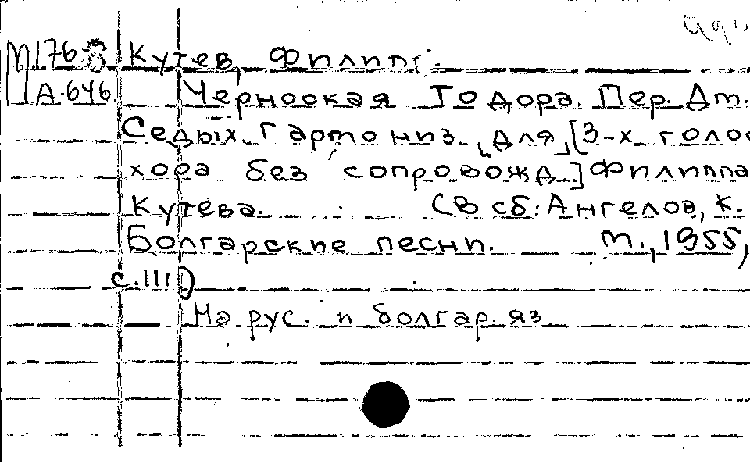 М176-8 Кутев, Филипп.
А.646 Черноокая Тодора. Пер. Дм.
Седых. Гармониз. для [3-х голос
хора без сопровожд.] Филиппа
Кутева. (В сб: Ангелов, К.
Болгарские песни. М., 1955,
с. 111)
На рус. и болгар. яз